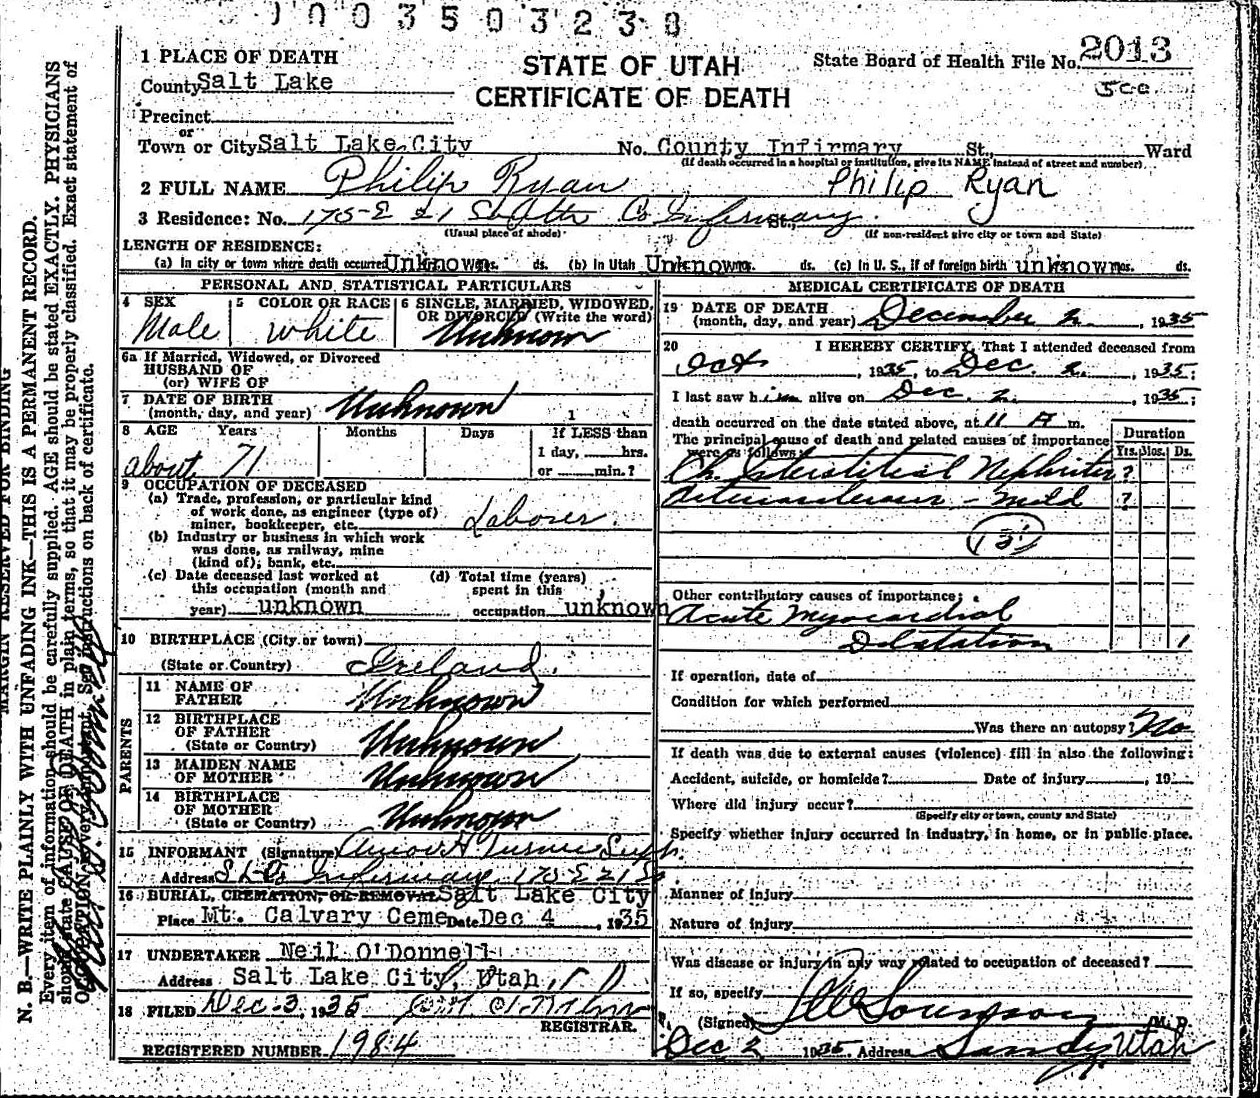 1003503238
1 PLACE OF DEATH
STATE OF UTAH
CERTIFICATE OF DEATH
State Board of Health File No. 2013
County Salt Lake
Precinct
or
Town or City Salt Lake City No. County Infirmary St., Ward
(If death occurred in a hospital or institution, give its NAME instead of street and number)
2 FULL NAME Philip Ryan Philip Ryan
3 Residence: No. 175-E 21 South Co Infirmary St.,
(Usual place of abode) (If non-resident give city or town and State)
LENGTH OF RESIDENCE:
(a) In city or town where death occurred Unknown yrs. ds. (b) In Utah Unknown ds. (c) In U. S., if of foreign birth unknown mos. ds.
PERSONAL AND STATISTICAL PARTICULARS
4 SEX
Male
5 COLOR OR RACE
White
6 SINGLE, MARRIED, WIDOWED,
OR DIVORCED (Write the word)
Unknown
6a If Married, Widowed, or Divorced
HUSBAND OF
(or) WIFE OF
7 DATE OF BIRTH
(month, day, and year) Unknown
8 AGE Years Months Days If LESS than
1 day, hrs.
about 71 or min.?
9 OCCUPATION OF DECEASED
(a) Trade, profession, or particular kind
of work done, as engineer (type of)
miner, bookkeeper, etc. Laborer.
(b) Industry or business in which work
was done, as railway, mine
(kind of); bank, etc.
(c) Date deceased last worked at
this occupation (month and
year) unknown
(d) Total time (years)
spent in this
occupation unknown
10 BIRTHPLACE (City or town)
(State or Country) Ireland.
PARENTS
11 NAME OF
FATHER Unknown
12 BIRTHPLACE
OF FATHER
(State or Country) Unknown
13 MAIDEN NAME
OF MOTHER Unknown
14 BIRTHPLACE
OF MOTHER
(State or Country) Unknown
15 INFORMANT (Signature) Amos H Turner Supt.
Address S L Co Infirmary 175 E 21 So
16 BURIAL, CREMATION, OR REMOVAL Salt Lake City
Place Mt. Calvary Ceme Date Dec 4, 1935
17 UNDERTAKER Neil O'Donnell
Address Salt Lake City, Utah
18 FILED Dec-3, 1935
REGISTRAR.
REGISTERED NUMBER 1984
MEDICAL CERTIFICATE OF DEATH
19 DATE OF DEATH
(month, day, and year) December 2, 1935
20 I HEREBY CERTIFY, That I attended deceased from
Oct, 1935, to Dec. 2, 1935;
I last saw him alive on Dec. 2, 1935;
death occurred on the date stated above, at 11 A m.
The principal cause of death and related causes of importance
were as follows:
Duration
Yrs. Mos. Ds.
Ch. Interstitial Nephritis ?
Arteriosclerosis - Mild ?
131
Other contributory causes of importance:
Acute Myocardial
Dilatation 1
If operation, date of
Condition for which performed
Was there an autopsy? No
If death was due to external causes (violence) fill in also the following:
Accident, suicide, or homicide? Date of injury, 19
Where did injury occur?
(Specify city or town, county and State)
Specify whether injury occurred in industry, in home, or in public place.
Manner of injury
Nature of injury
Was disease or injury in any way related to occupation of deceased?
If so, specify
(Signed) M. D.
Dec 2 1935. Address Sandy Utah
MARGIN RESERVED FOR BINDING
N. B.—WRITE PLAINLY WITH UNFADING INK—THIS IS A PERMANENT RECORD.
Every item of information should be carefully supplied. AGE should be stated EXACTLY. PHYSICIANS
should state CAUSE OF DEATH in plain terms, so that it may be properly classified. Exact statement of
OCCUPATION is very important. See instructions on back of certificate.